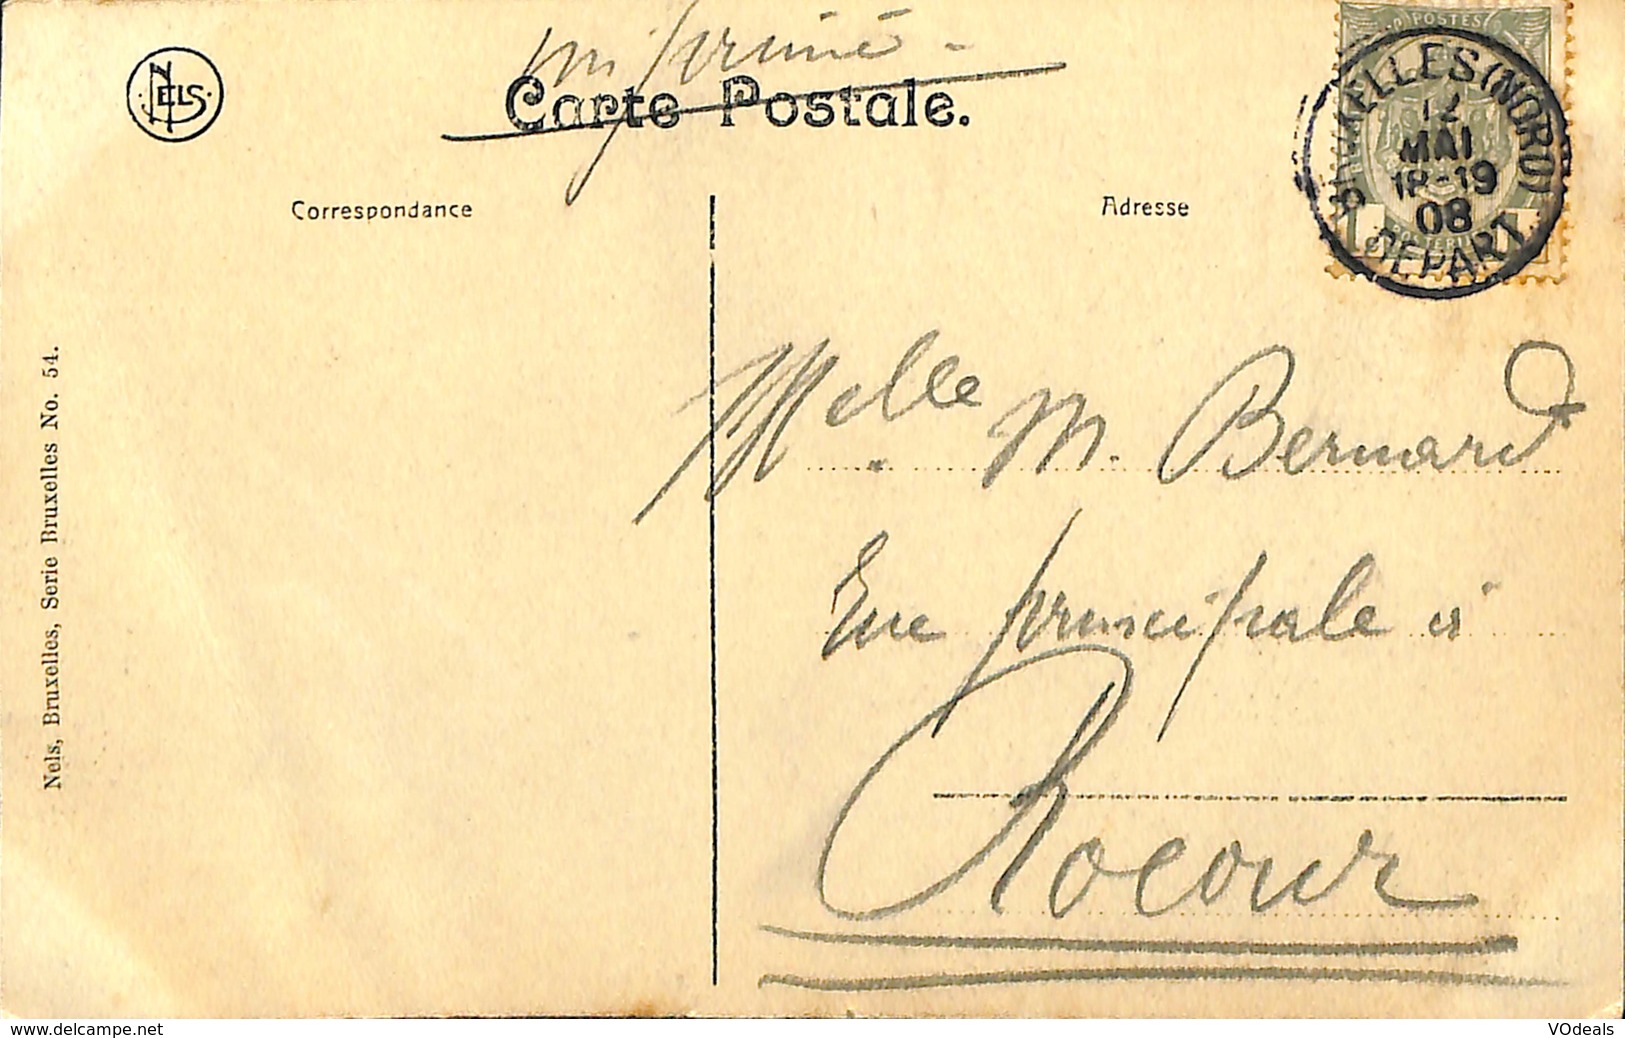 imprimé -
NELS
Carte Postale.
POSTES
BRUXELLES (NORD)
12
MAI
18-19
08
DEPART
Correspondance
Adresse
Nels, Bruxelles, Serie Bruxelles No. 54.
Melle M. Bernard
Rue principale à
Rocour
delcampe.net
VOdeals